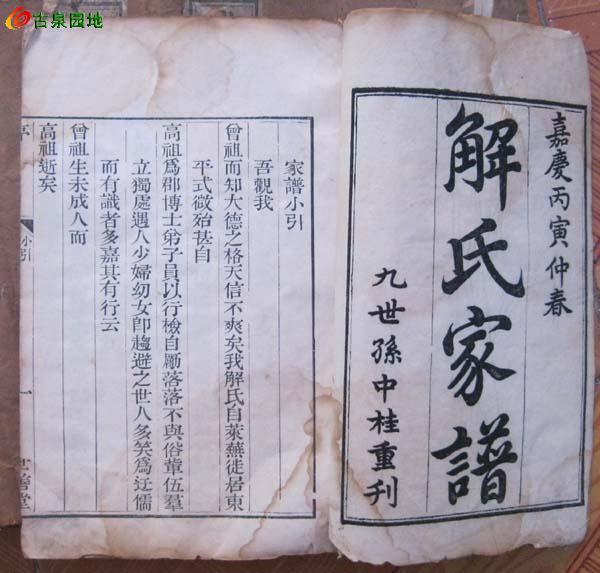 古泉园地
嘉慶丙寅仲春
解氏家譜
九世孫中桂重刊
家譜小引
吾觀我
曾祖而知大德之格天信不爽矣我解氏自萊蕪徙居東
平式微殆甚自
高祖爲郡博士弟子員以行檢自勵落落不與俗輩伍羣
立獨處遇人少婦幼女卽趨避之世人多笑爲迂儒
而有識者多嘉其有行云
曾祖生未成人而
高祖逝矣
小引
一
世善堂